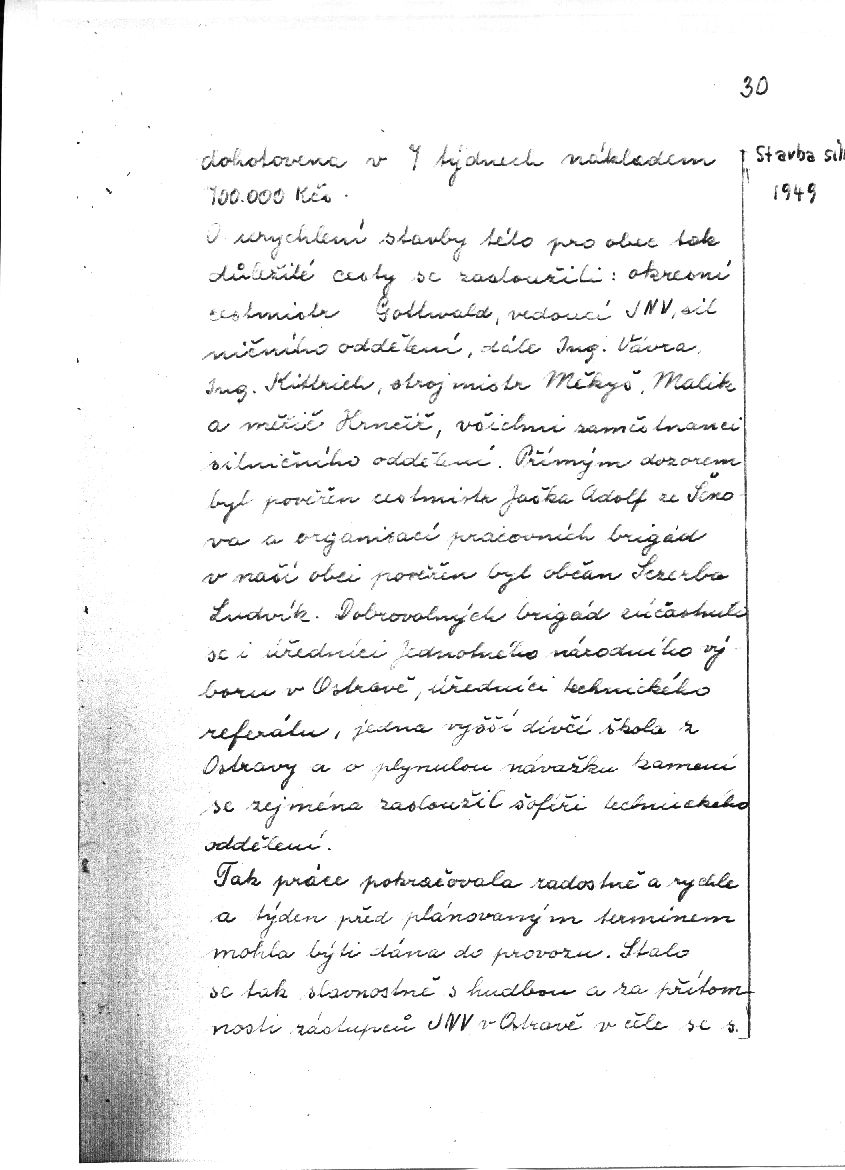 30
Stavba sil
1949
dohotovena v 7 týdnech nákladem
700.000 Kčs.
O urychlení stavby této pro obec tak
důležité cesty se zasloužili: okresní
cestmistr Gottwald, vedoucí JNV, sil
ničního oddělení, dále Ing. Vávra,
Ing. Kittrich, strojmistr Měkyš, Malik
a měřič Hrnčíř, všichni zaměstnanci
silničního oddělení. Přímým dozorem
byl pověřen cestmistr Jaška Adolf ze Šeno-
va a organisací pracovních brigád
v naší obci pověřen byl občan Sczerba
Ludvík. Dobrovolných brigád zúčastnili
se i úředníci Jednotného národního vý-
boru v Ostravě, úředníci technického
referátu, jedna vyšší dívčí škola z
Ostravy a o plynulou návažku kamení
se zejména zasloužil šoféři technického
oddělení.
Tak práce pokračovala radostně a rychle
a týden před plánovaným termínem
mohla býti dána do provozu. Stalo
se tak slavnostně s hudbou a za přítom-
nosti zástupců JNV v Ostravě v čele se s.